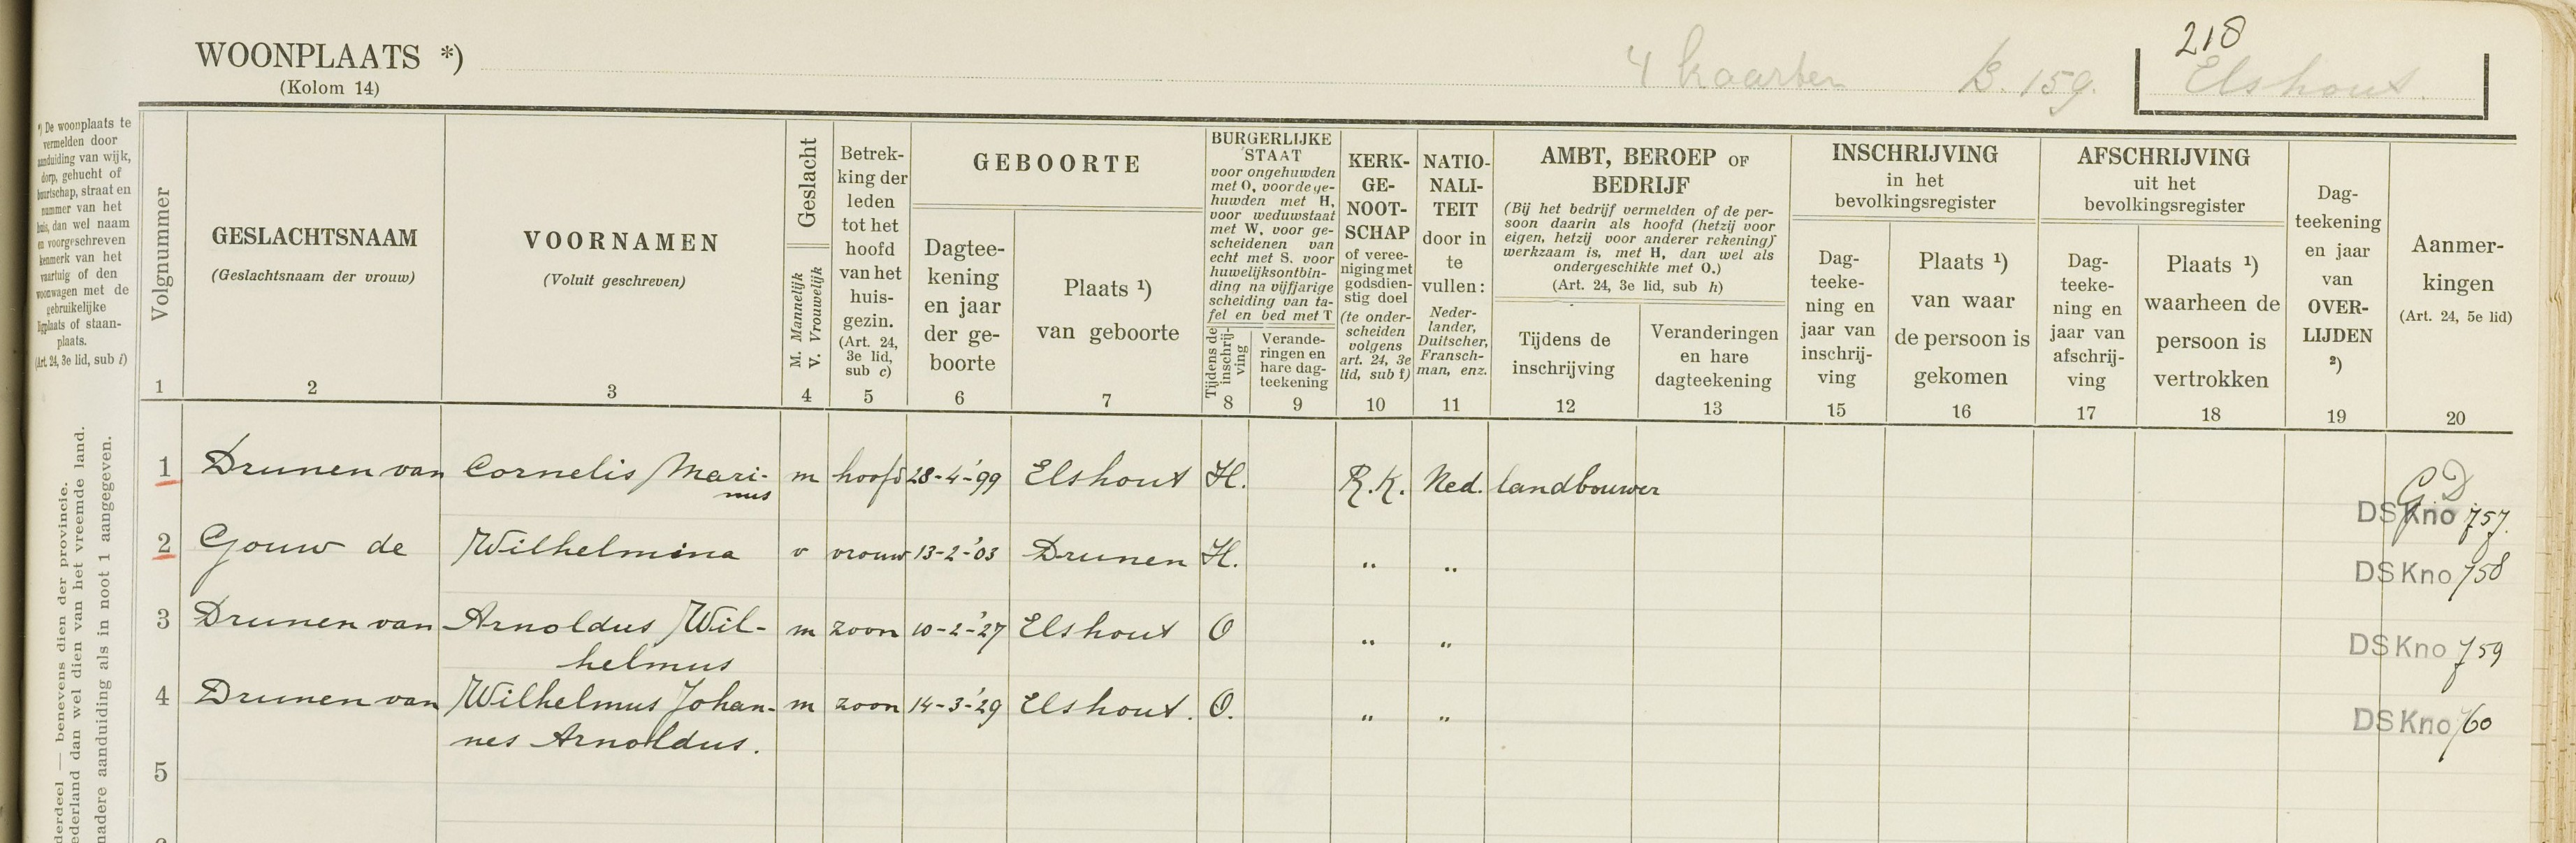 218
WOONPLAATS *)
(Kolom 14)
4 kaarten
B. 159.
Elshout.
*) De woonplaats te
vermelden door
aanduiding van wijk,
dorp, gehucht of
buurtschap, straat en
nummer van het
huis, dan wel naam
en voorgeschreven
kenmerk van het
vaartuig of den
woonwagen met de
gebruikelijke
ligplaats of staan-
plaats.
(Art. 24, 3e lid, sub i)
derdeel — benevens dien der provincie.
ederland dan wel dien van het vreemde land.
nadere aanduiding als in noot 1 aangegeven.
Volgnummer
1
GESLACHTSNAAM
(Geslachtsnaam der vrouw)
2
VOORNAMEN
(Voluit geschreven)
3
Geslacht
M. Mannelijk
V. Vrouwelijk
4
Betrek-
king der
leden
tot het
hoofd
van het
huis-
gezin.
(Art. 24,
3e lid,
sub c)
5
GEBOORTE
Dagtee-
kening
en jaar
der ge-
boorte
6
Plaats ¹)
van geboorte
7
BURGERLIJKE
STAAT
voor ongehuwden
met O, voor de ge-
huwden met H,
voor weduwstaat
met W, voor ge-
scheidenen van
echt met S. voor
huwelijksontbin-
ding na vijfjarige
scheiding van ta-
fel en bed met T
Tijdens de
inschrij-
ving
8
Verande-
ringen en
hare dag-
teekening
9
KERK-
GE-
NOOT-
SCHAP
of veree-
niging met
godsdien-
stig doel
(te onder-
scheiden
volgens
art. 24, 3e
lid, sub f)
10
NATIO-
NALI-
TEIT
door in
te
vullen:
Neder-
lander,
Duitscher,
Fransch-
man, enz.
11
AMBT, BEROEP OF
BEDRIJF
(Bij het bedrijf vermelden of de per-
soon daarin als hoofd (hetzij voor
eigen, hetzij voor anderer rekening)
werkzaam is, met H, dan wel als
ondergeschikte met O.)
(Art. 24, 3e lid, sub h)
Tijdens de
inschrijving
12
Veranderingen
en hare
dagteekening
13
INSCHRIJVING
in het
bevolkingsregister
Dag-
teeke-
ning en
jaar van
inschrij-
ving
15
Plaats ¹)
van waar
de persoon is
gekomen
16
AFSCHRIJVING
uit het
bevolkingsregister
Dag-
teeke-
ning en
jaar van
afschrij-
ving
17
Plaats ¹)
waarheen de
persoon is
vertrokken
18
Dag-
teekening
en jaar
van
OVER-
LIJDEN
²)
19
Aanmer-
kingen
(Art. 24, 5e lid)
20
1 Drunen van Cornelis Mari-nus m hoofd 28-4-'99 Elshout H. R.K. Ned. landbouwer G.D DSKno 757.
2 Gouw de Wilhelmina v vrouw 13-2-'03 Drunen H. " " DSKno 758
3 Drunen van Arnoldus Wil- m zoon 10-2-'27 Elshout O " " DSKno 759
helmus
4 Drunen van Wilhelmus Johan- m zoon 14-3-'29 Elshout. O. " " DSKno 760
nes Arnoldus.
5